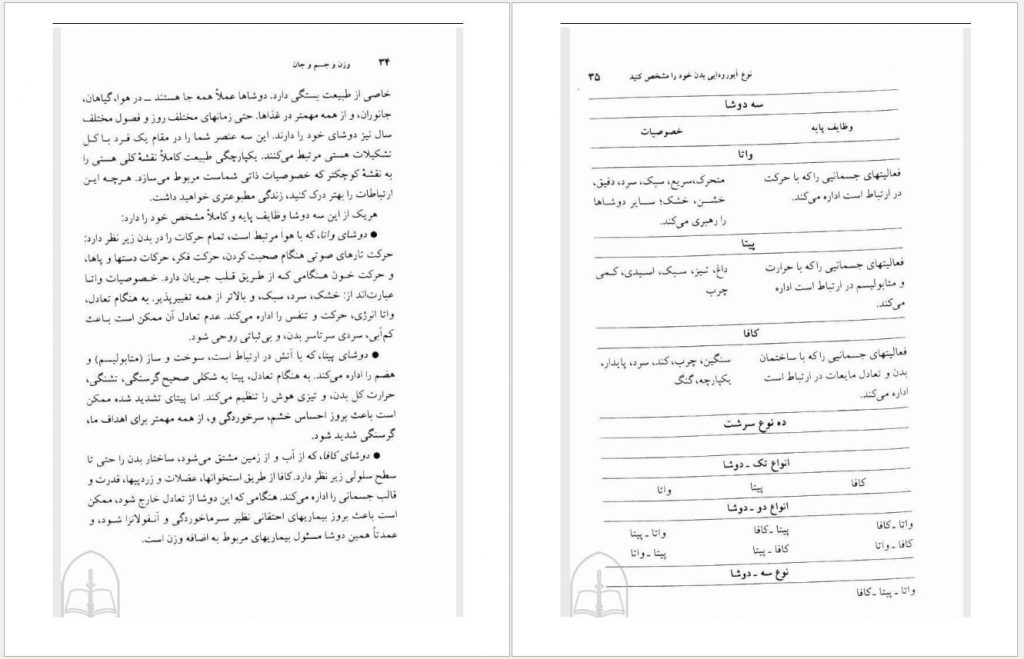 ۳۴ وزن و جسم و جان
خاصی از طبیعت بستگی دارد. دوشاها عملاً همه جا هستند ــ در هوا، گیاهان،
جانوران، و از همه مهمتر در غذاها. حتی زمانهای مختلف روز و فصول مختلف
سال نیز دوشای خود را دارند. این سه عنصر شما را در مقام یک فرد با کل
تشکیلات هستی مرتبط می‌کنند. یکپارچگی طبیعت کاملاً نقشهٔ کلی هستی را
به نقشهٔ کوچکتر که خصوصیات ذاتی شماست مربوط می‌سازد. هرچه این
ارتباطات را بهتر درک کنید، زندگی مطبوعتری خواهید داشت.
هریک از این سه دوشا وظایف پایه و کاملاً مشخص خود را دارد:
● دوشای واتا، که با هوا مرتبط است، تمام حرکات را در بدن زیر نظر دارد:
حرکت تارهای صوتی هنگام صحبت کردن، حرکت فکر، حرکات دستها و پاها،
و حرکت خون هنگامی که از طریق قلب جریان دارد. خصوصیات واتا
عبارت‌اند از: خشک، سرد، سبک، و بالاتر از همه تغییرپذیر. به هنگام تعادل،
واتا انرژی، حرکت و تنفس را اداره می‌کند. عدم تعادل آن ممکن است باعث
کم‌آبی، سردی سرتاسر بدن، و بی‌ثباتی روحی شود.
● دوشای پیتا، که با آتش در ارتباط است، سوخت و ساز (متابولیسم) و
هضم را اداره می‌کند. به هنگام تعادل، پیتا به شکلی صحیح گرسنگی، تشنگی،
حرارت کل بدن، و تیزی هوش را تنظیم می‌کند. اما پیتای تشدید شده ممکن
است باعث بروز احساس خشم، سرخوردگی و، از همه مهمتر برای اهداف ما،
گرسنگی شدید شود.
● دوشای کافا، که از آب و از زمین مشتق می‌شود، ساختار بدن را حتی تا
سطح سلولی زیر نظر دارد. کافا از طریق استخوانها، عضلات و زردپیها، قدرت و
قالب جسمانی را اداره می‌کند. هنگامی که این دوشا از تعادل خارج شود، ممکن
است باعث بروز بیماریهای احتقانی نظیر سرماخوردگی و آنفولانزا شود، و
عمدتاً همین دوشا مسئول بیماریهای مربوط به اضافه وزن است.
نوع آیورودایی بدن خود را مشخص کنید ۳۵
سه دوشا
وظایف پایه خصوصیات
واتا
فعالیتهای جسمانیی را که با حرکت متحرک، سریع، سبک، سرد، دقیق،
در ارتباط است اداره می‌کند. خشن، خشک؛ سایر دوشاها
را رهبری می‌کند.
پیتا
فعالیتهای جسمانیی را که با حرارت داغ، تیز، سبک، اسیدی، کمی
و متابولیسم در ارتباط است اداره چرب
می‌کند.
کافا
فعالیتهای جسمانیی را که با ساختمان سنگین، چرب، کند، سرد، پایدار،
بدن و تعادل مایعات در ارتباط است یکپارچه، گنگ
اداره می‌کند.
ده نوع سرشت
انواع تک ـ دوشا
کافا پیتا واتا
انواع دو ـ دوشا
واتا ـ کافا پیتا ـ کافا واتا ـ پیتا
کافا ـ واتا کافا ـ پیتا پیتا ـ واتا
نوع سه ـ دوشا
واتا ـ پیتا ـ کافا